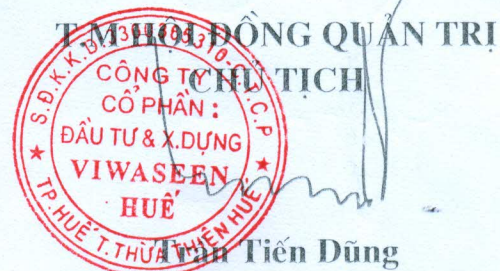 T.M HỘI ĐỒNG QUẢN TRỊ
CHỦ TỊCH
CÔNG TY
CỔ PHẦN :
ĐẦU TƯ & X.DỰNG
VIWASEEN
HUẾ
TP.HUẾ T.THỪA THIÊN HUẾ
Trần Tiến Dũng